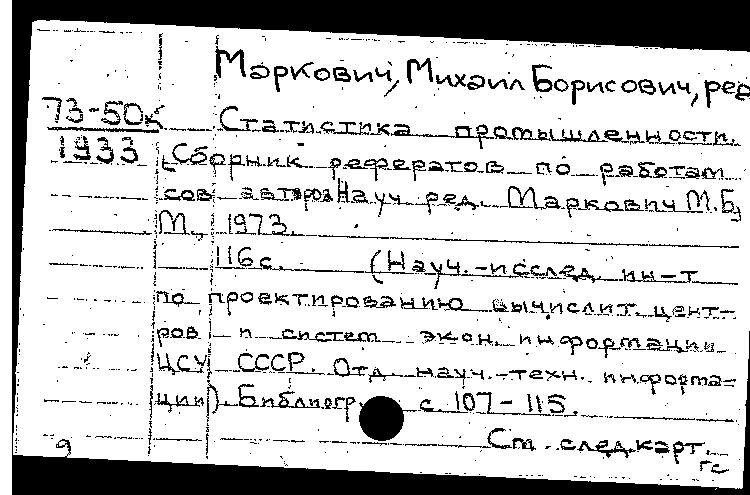 Маркович, Михаил Борисович, ред
73-50к Статистика промышленности.
1933 [Сборник рефератов по работам
сов. авторов] Науч. ред. Маркович М.Б,
М., 1973.
116с. (Науч.-исслед. ин-т
по проектированию вычислит. цент-
ров и систем экон. информации
ЦСУ СССР. Отд. науч.-техн. информа-
ции). Библиогр с. 107-115.
См. след.карт.
9 гс